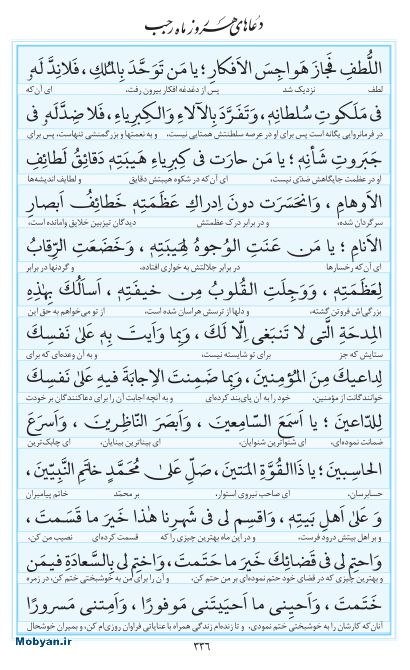 دعاهای هر روز ماه رجب
اللُّطفِ فَجازَ هَواجِسَ الاَفكارِ؛ يا مَن تَوَحَّدَ بِالمُلكِ، فَلا نِدَّ لَهُ
لطف نزدیک شد پس از دغدغه افکار بیرون رفت، ای آن که
فى مَلَكوتِ سُلطانِهِ، وَتَفَرَّدَ بِالآلاءِ وَالكِبرِياءِ، فَلا ضِدَّ لَهُ فى
در فرمانروایی یگانه است پس برای او در عرصه سلطنتش همتایی نیست، و به نعمتها و بزرگمنشی تنهاست، پس برای
جَبَروتِ شَأنِهِ؛ يا مَن حارَت فى كِبرِياءِ هَيبَتِهِ دَقائِقُ لَطائِفِ
او در عظمت جایگاهش ضدّی نیست، ای آن که در شکوه هیبتش دقایق و لطایف اندیشه‌ها
الاَوهامِ، وَانحَسَرَت دونَ اِدراكِ عَظَمَتِهِ خَطائِفُ اَبصارِ
سرگردان شده، و در برابر درک عظمتش دیدگان تیزبین خلایق وامانده است،
الاَنامِ؛ يا مَن عَنَتِ الوُجوهُ لِهَيبَتِهِ، وَخَضَعَتِ الرِّقابُ
ای آن که رخسارها در برابر جلالتش به خواری افتاده، و گردنها در برابر
لِعَظَمَتِهِ، وَوَجِلَتِ القُلوبُ مِن خيفَتِهِ، اَسأَلُكَ بِهٰذِهِ
بزرگی‌اش فروتن گشته، و دلها از ترسش هراسان شده است، از تو می‌خواهم به حق این
المِدحَةِ الَّتى لا تَنبَغى اِلّا لَكَ، وَبِما وَاَيتَ بِهِ عَلىٰ نَفسِكَ
ستایش که جز برای تو شایسته نیست، و به آن وعده‌ای که برای
لِداعيكَ مِنَ المُؤمِنينَ، وَبِما ضَمِنتَ الاِجابَةَ فيهِ عَلىٰ نَفسِكَ
خوانندگانت از مؤمنین، خود را به آن پای‌بند کرده‌ای و به آنچه اجابت آن را برای دعاکنندگان بر خودت
لِلدّاعينَ؛ يا اَسمَعَ السّامِعينَ، وَاَبصَرَ النّاظِرينَ، وَاَسرَعَ
ضمانت نموده‌ای، ای شنواترین شنوایان، ای بیناترین بینایان، ای چابک‌ترین
الحاسِبينَ؛ يا ذَا القُوَّةِ المَتينَ، صَلِّ عَلىٰ مُحَمَّدٍ خاتَمِ النَّبِيّينَ،
حسابرسان، ای صاحب نیروی استوار، بر محمّد خاتم پیامبران
وَ عَلىٰ اَهلِ بَيتِهِ، وَاقسِم لى فى شَهرِنا هٰذا خَيرَ ما قَسَمتَ،
و بر اهل بیتش درود فرست، و در این ماه بهترین چیزی را که قسمت کرده‌ای نصیب من کن،
وَاحتِم لى فى قَضائِكَ خَيرَ ما حَتَمتَ، وَاختِم لى بِالسَّعادَةِ فيمَن
و بهترین چیزی که در قضای خود حتم نموده‌ای بر من حتم کن، و آن را برای من به خوشبختی ختم کن، در زمره
خَتَمتَ، وَاَحيِنى ما اَحيَيتَنى مَوفورًا، وَاَمِتنى مَسرورًا
آنان که کارشان را به خوشبختی ختم نمودی، و تا زنده‌ام زندگی همراه با عنایاتی فراوان روزی‌ام کن، و بمیران خوشحال
Mobyan.ir
۳۳۶